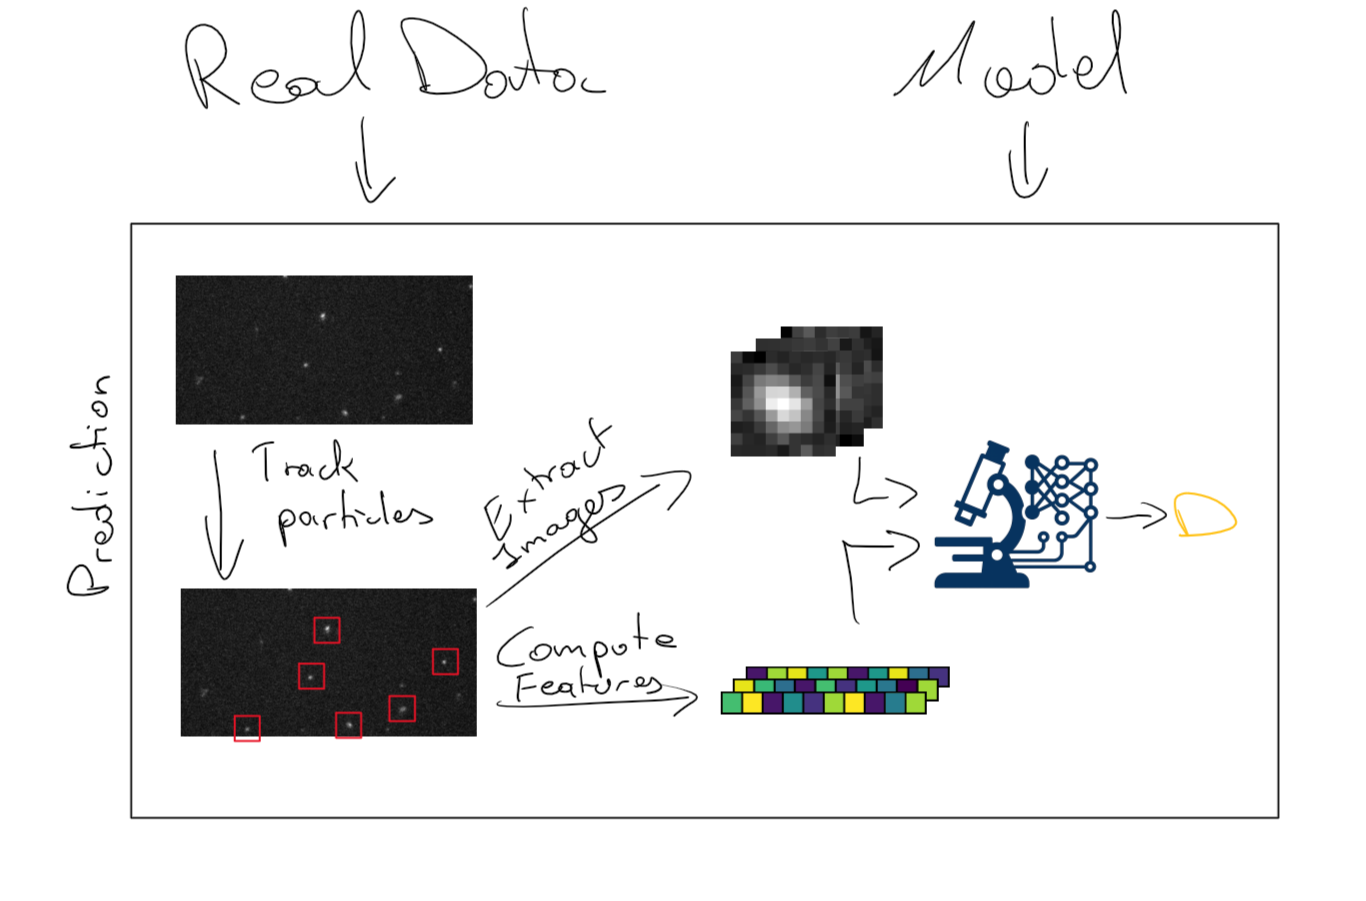 Real Data
Model
Prediction
Track
particles
Extract
Images
Compute
Features
D